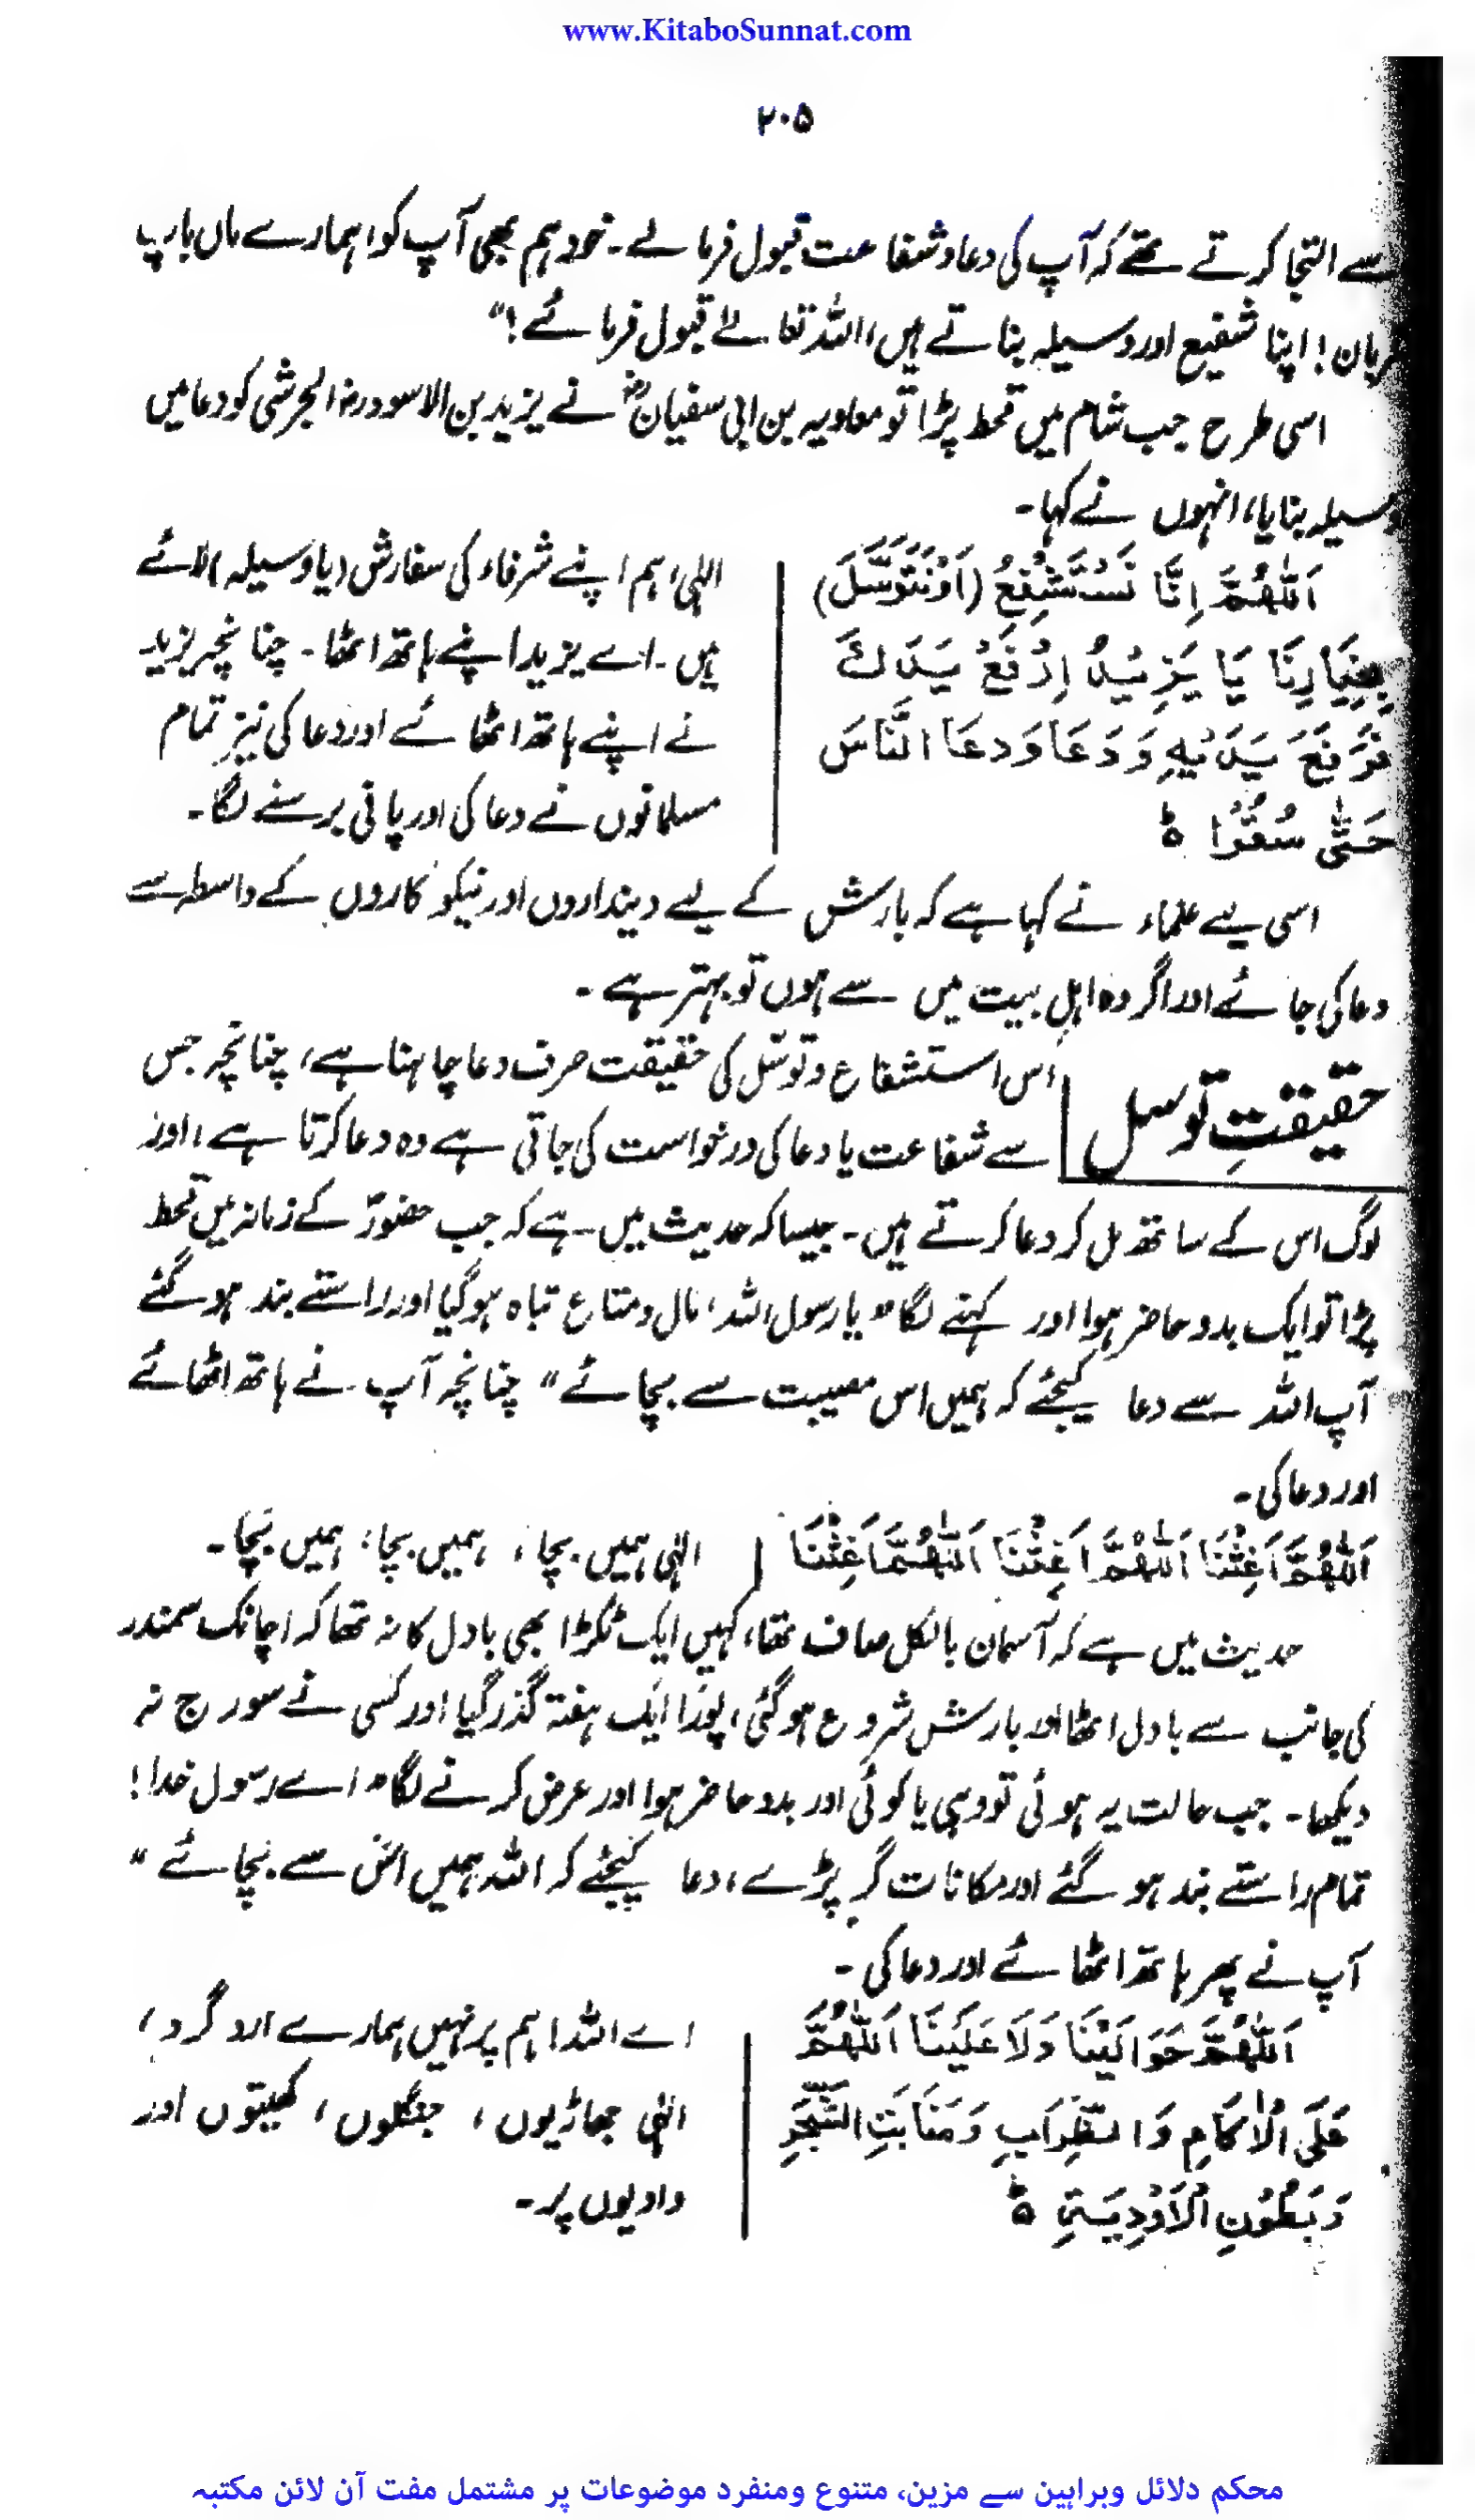 www.KitaboSunnat.com
۲۰۵
سے التجا کرتے تھے کہ آپ کی دعا و شفاعت قبول فرمالے۔ خود ہم بھی آپ کو، ہمارے ماں باپ
قربان! اپنا شفیع اور وسیلہ بناتے ہیں، اللہ تعالےٰ قبول فرمائے!"
اسی طرح جب شام میں قحط پڑا تو معاویہ بن ابی سفیانؓ نے یزید بن الاسود الجرشی کو دعا میں
وسیلہ بنایا، انہوں نے کہا۔
اَللّٰھُمَّ اِنَّا نَسْتَشْفِعُ (اَوْنَتَوَسَّلَ)
بِخِیَارِنَا یَا یَزِیْدُ اِرْفَعْ یَدَكَ
فَرَفَعَ یَدَیْهِ وَدَعَا وَدعَا النَّاسَ
حَتّٰی سُقُوْا ہ
الٰہی، ہم اپنے شرفاء کی سفارش (یا وسیلہ) لائے
ہیں۔ اے یزید اپنے ہاتھ اٹھا۔ چنانچہ یزید
نے اپنے ہاتھ اٹھائے اور دعا کی نیز تمام
مسلمانوں نے دعا کی اور پانی برسنے لگا۔
اسی لیے علماء نے کہا ہے کہ بارش کے لیے دینداروں اور نیکو کاروں کے واسطہ سے
دعا کی جائے اور اگر وہ اہل بیت میں سے ہوں تو بہتر ہے۔
حقیقتِ توسل
اس استشفاع و توسّل کی حقیقت صرف دعا چاہنا ہے، چنانچہ جس
سے شفاعت یا دعا کی درخواست کی جاتی ہے وہ دعا کرتا ہے، اور
لوگ اس کے ساتھ مل کر دعا کرتے ہیں۔ جیسا کہ حدیث میں ہے کہ جب حضورؐ کے زمانہ میں قحط
پڑا تو ایک بدو حاضر ہوا اور کہنے لگا "یا رسول اللہ، مال و متاع تباہ ہوگیا اور راستے بند ہوگئے
آپ اللہ سے دعا کیجئے کہ ہمیں اس مصیبت سے بچائے" چنانچہ آپ نے ہاتھ اٹھائے
اور دعا کی۔
اَللّٰھُمَّ اَغِثْنَا اَللّٰھُمَّ اَغِثْنَا اَللّٰھُمَّ اَغِثْنَا
الٰہی ہمیں بچا، ہمیں بچا، ہمیں بچا۔
حدیث میں ہے کہ آسمان بالکل صاف تھا، کہیں ایک ٹکڑا بھی بادل کا نہ تھا کہ اچانک سمندر
کی جانب سے بادل اٹھا اور بارش شروع ہوگئی، پورا ایک ہفتہ گذر گیا اور کسی نے سورج نہ
دیکھا۔ جب حالت یہ ہوئی تو وہی یا کوئی اور بدو حاضر ہوا اور عرض کرنے لگا "اے رسول خدا!
تمام راستے بند ہوگئے اور مکانات گر پڑے، دعا کیجئے کہ اللہ ہمیں اس سے بچائے"
آپ نے پھر ہاتھ اٹھائے اور دعا کی۔
اَللّٰھُمَّ حَوَالَیْنَا وَلَا عَلَیْنَا اَللّٰھُمَّ
عَلَی الْاٰکَامِ وَالظِّرَابِ وَمَنَابَتِ الشَّجَرِ
وَبَطُوْنِ الْاَوْدِیَةِ ہ
اے اللہ! ہم پر نہیں ہمارے ارد گرد،
الٰہی جھاڑیوں، جنگلوں، کھیتوں اور
وادیوں پر۔
محکم دلائل وبراہین سے مزین، متنوع ومنفرد موضوعات پر مشتمل مفت آن لائن مکتبہ